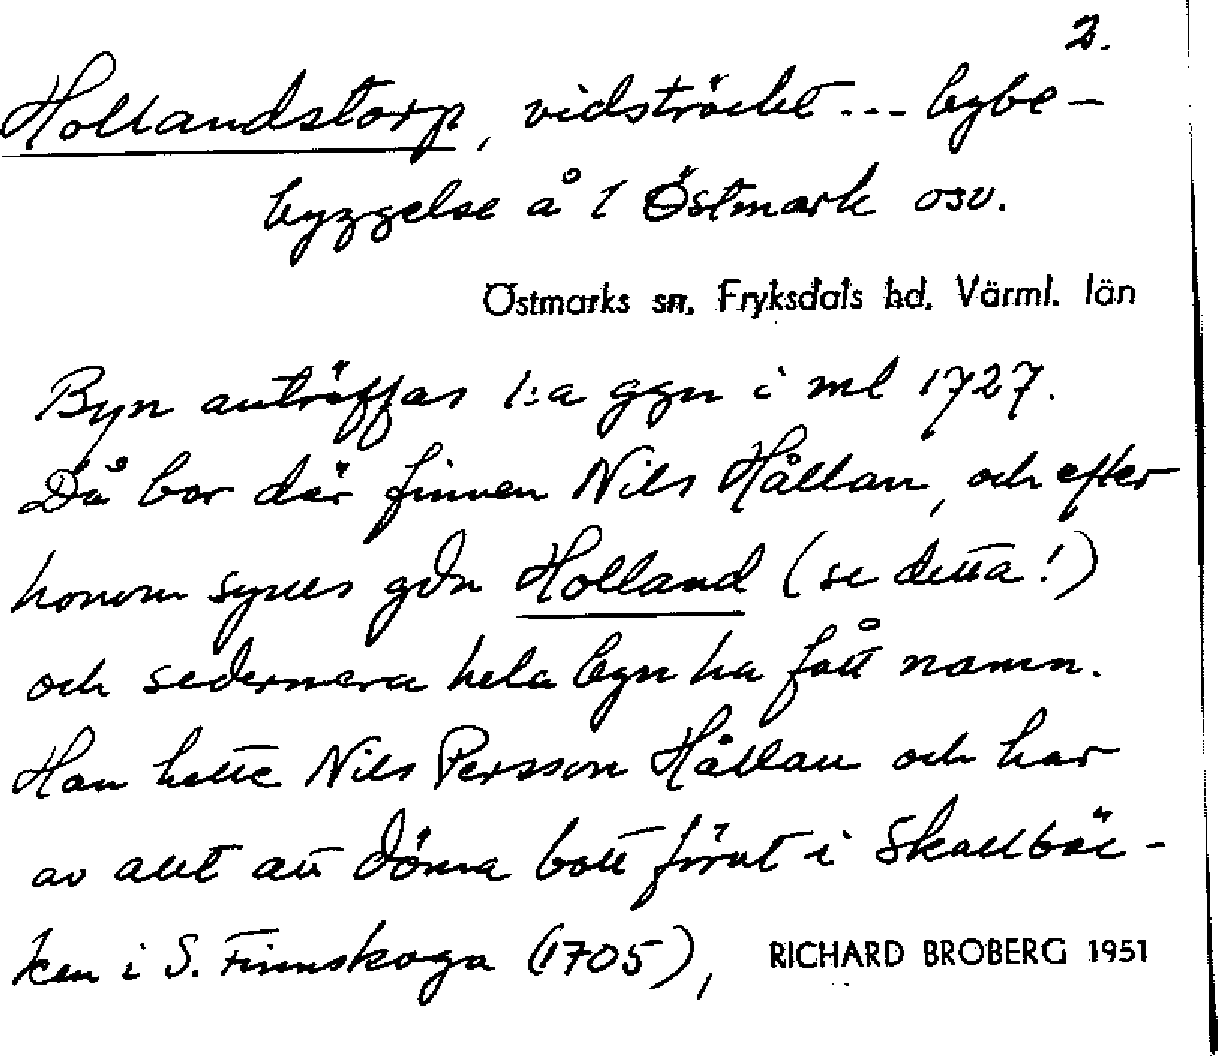 2.
Hollandstorp, vidsträckt --- bybe-
byggelse å 1 Östmark osv.
Östmarks sn. Fryksdals hd. Värml. län
Byn anträffas 1:a ggn i ml 1727.
Då bor där finnen Nils Hållan, och efter
honom synes gdn Holland (se detta!)
och sedermera hela byn ha fått namn.
Han hette Nils Persson Hållan och har
av allt att döma bott förut i Skallbäc-
ken i S. Finnskoga (1705),
RICHARD BROBERG 1951